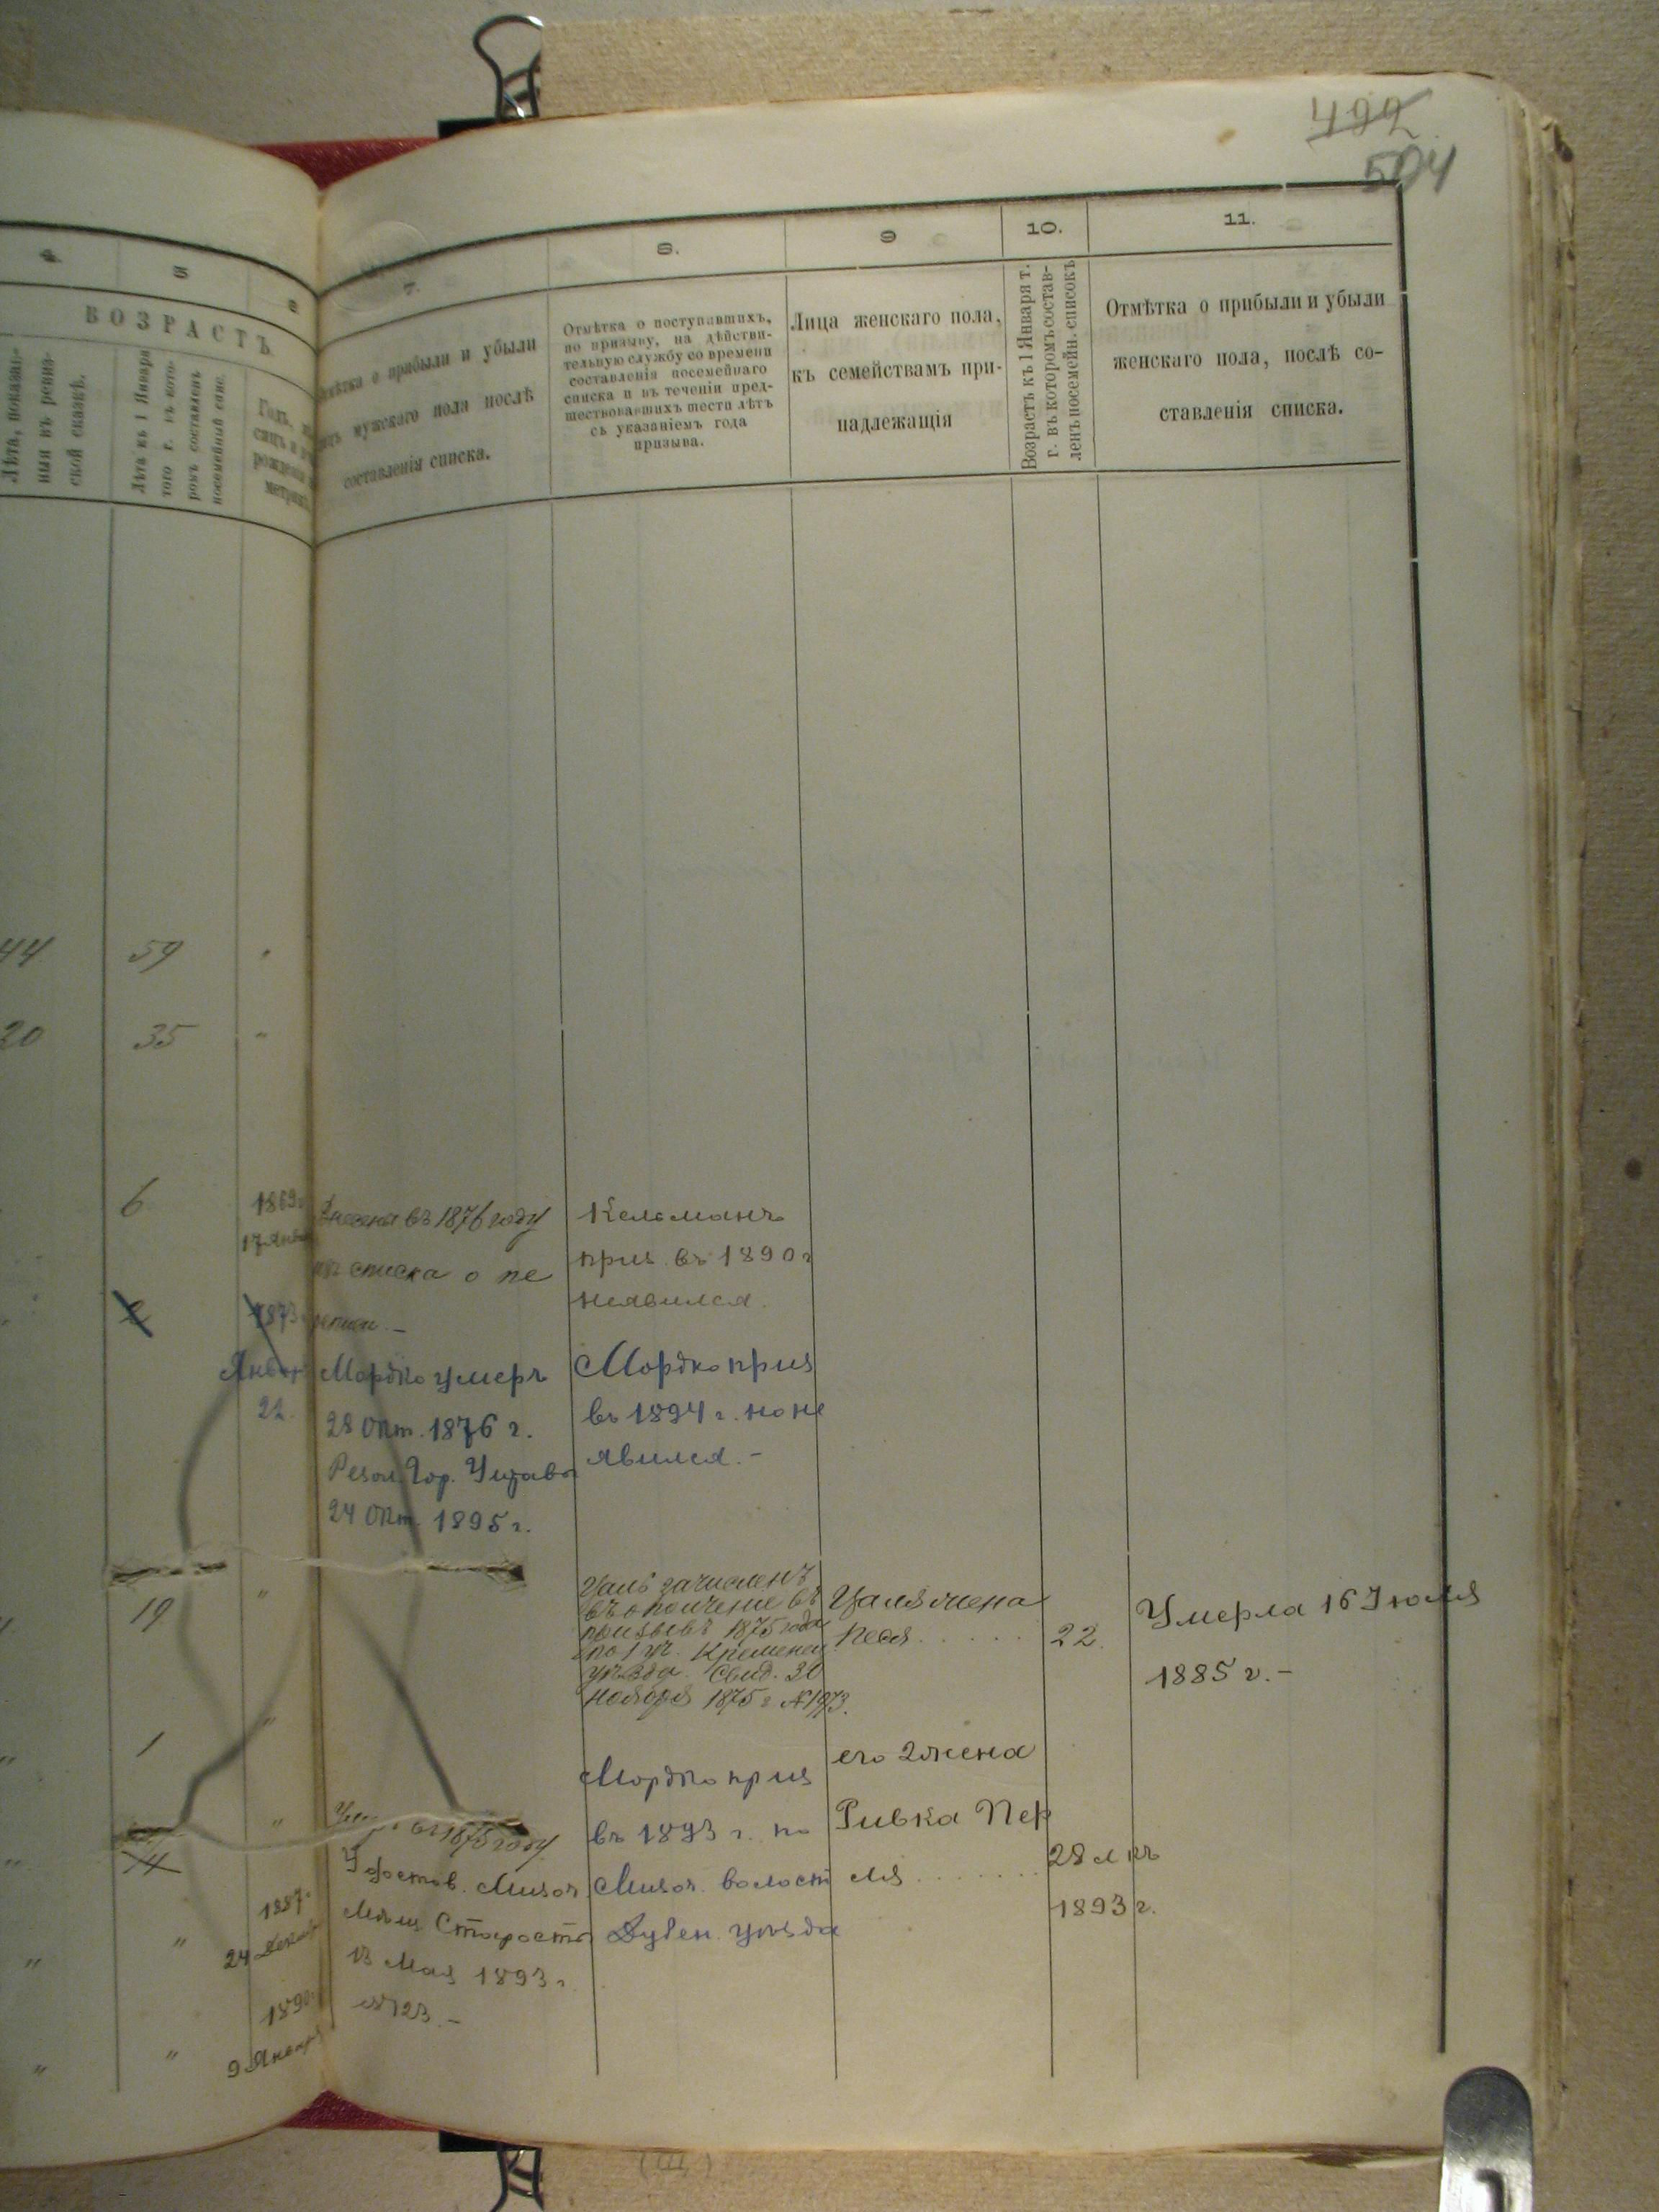 492
504
4.
5
6
7.
8.
9
10.
11.
ВОЗРАСТЪ
Лѣта, показан-
ныя въ ревиз-
ской сказкѣ.
Лѣта къ 1 Января
того г. въ кото-
ромъ составленъ
посемейный спис.
Годъ,
рожденія
метрик
Отмѣтка о прибыли и убыли
лицъ мужскаго пола послѣ
составленія списка.
Отмѣтка о поступавшихъ,
по призыву, на дѣйстви-
тельную службу со времени
составленія посемейнаго
списка и въ теченіи пред-
шествовавшихъ шести лѣтъ
съ указаніемъ года
призыва.
Лица женскаго пола,
къ семействамъ при-
надлежащія
Возрастъ къ 1 Января т.
г. въ которомъ состав-
ленъ посемейн. списокъ
Отмѣтка о прибыли и убыли
женскаго пола, послѣ со-
ставленія списка.
44 59
20 35
6 1869
17 Янв
въ 1876 году
списка о пе
Кельманъ
приз. въ 1890 г
неявился.
1873
Январ
22.
Мордко умеръ
28 Окт. 1876 г.
Резол. Гор. Управы
24 Окт. 1895 г.
Мордко приз
въ 1894 г. но не
явился. –
19 "
Цаль зачисленъ
въ ополченіе въ
призывъ 1875 года
по 1 уч. Кременец
уѣзда. Свид. 30
ноября 1875 г. № 1973.
Цаля жена
Песя . . . . . .
22.
Умерла 16 Іюля
1885 г. –
1 "
Мордко приз
въ 1893 г. по
Мизоч. волост
Дубен. уѣзда
его 2 жена
Ривка Пер
ля . . . . . . .
28 л къ
1893 г.
въ 1875 году
Удостов. Мизоч.
Мѣщ. Старосты
13 Мая 1893 г.
№ 123. –
1887
24 Декаб
1890
9 Января